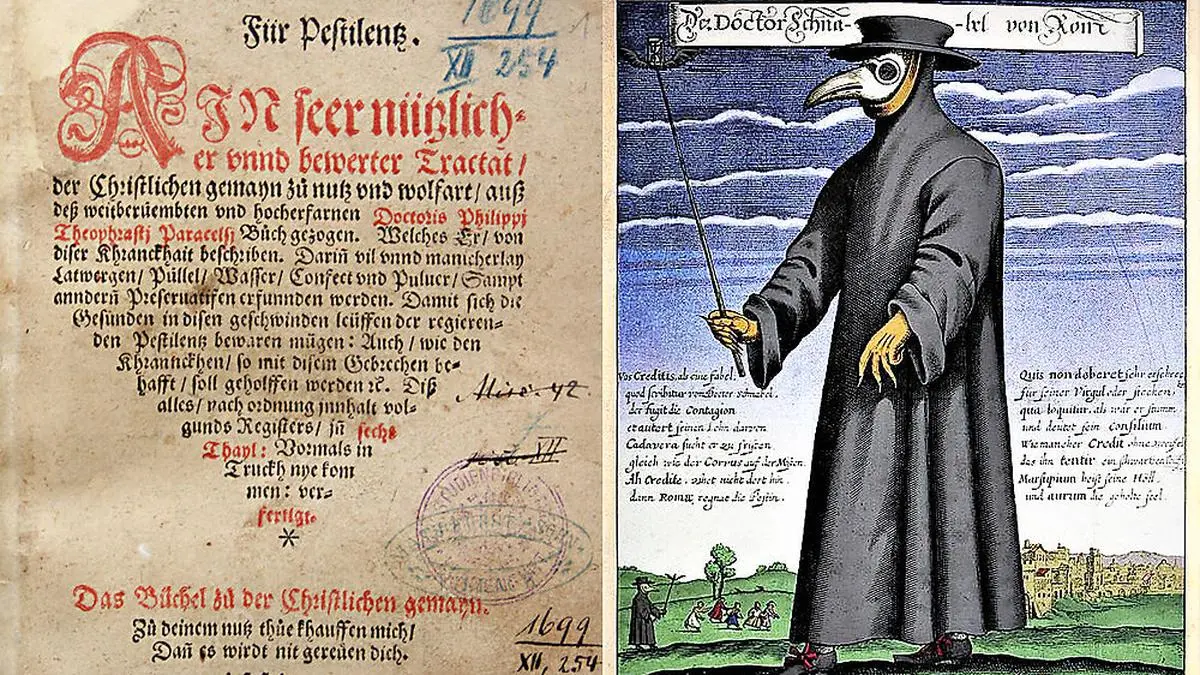 Für Pestilentz.
1699
XII 254
AIN seer nützlich-
er vnnd bewerter Tractat/
der Christlichen gemayn zů nutz vnd wolfart/ auß
deß weitberüembten vnd hocherfarnen Doctoris Philippj
Theophrastj Paracelsj Bůch gezogen. Welches Er/ von
diser Khranckhait beschriben. Dariñ vil vnnd manicherlay
Latwergen/ Püllel/ Wasser/ Confect vnd Puluer/ Sampt
anndern̄ Preseruatifen erfunnden werden. Damit sich die
Gesunden in disen geschwinden leüffen der regieren-
den Pestilentz bewaren mügen: Auch/ wie den
Khrannckhen/ so mit disem Gebrechen be-
hafft/ soll geholffen werden ꝛc. Diß
alles/ nach ordnung innhalt vol-
gunds Registers/ jn̄ sechs
Thayl: Vormals in
Truckh nye kom
men: ver-
fertigt.
*
XII
Das Büchel zů der Christlichen gemayn.
Zů deinem nutz thůe khauffen mich/
Dañ es wirdt nit gereüen dich.
1699
XII, 254
Der Doctor Schna-
-bel von Rom
Vos Creditis, als eine fabel,
quod scribitur vom Doctor Schnabel,
der fugit die Contagion
et aufert seinen Lohn darvon
Cadavera sucht er zu fristen
gleich wie der Corvus auf der Misten
Ah Credite, sihet nicht dort hin
dann Romæ regnat die Pestin.
Quis non deberet sehr erschrecken
für seiner Virgul oder stecken,
qua loquitur, als wär er stumm
und deutet sein Consilium
Wie mancher Credit ohne zweiffel
das ihn tentir ein schwartzer
Marsupium heist seine Höll
und aurum die geholte seel.